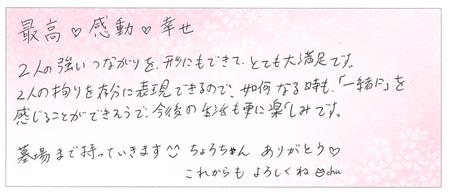 最高♡感動♡幸せ
2人の強いつながりを、形にもできて、とても大満足です。
2人の拘りを存分に表現できるので、如何なる時も、「一緒に」を
感じることができそうで、今後の生活も更に楽しみです。
墓場まで持っていきます^^ ちょろちゃん ありがとう♡
これからも よろしくね chu